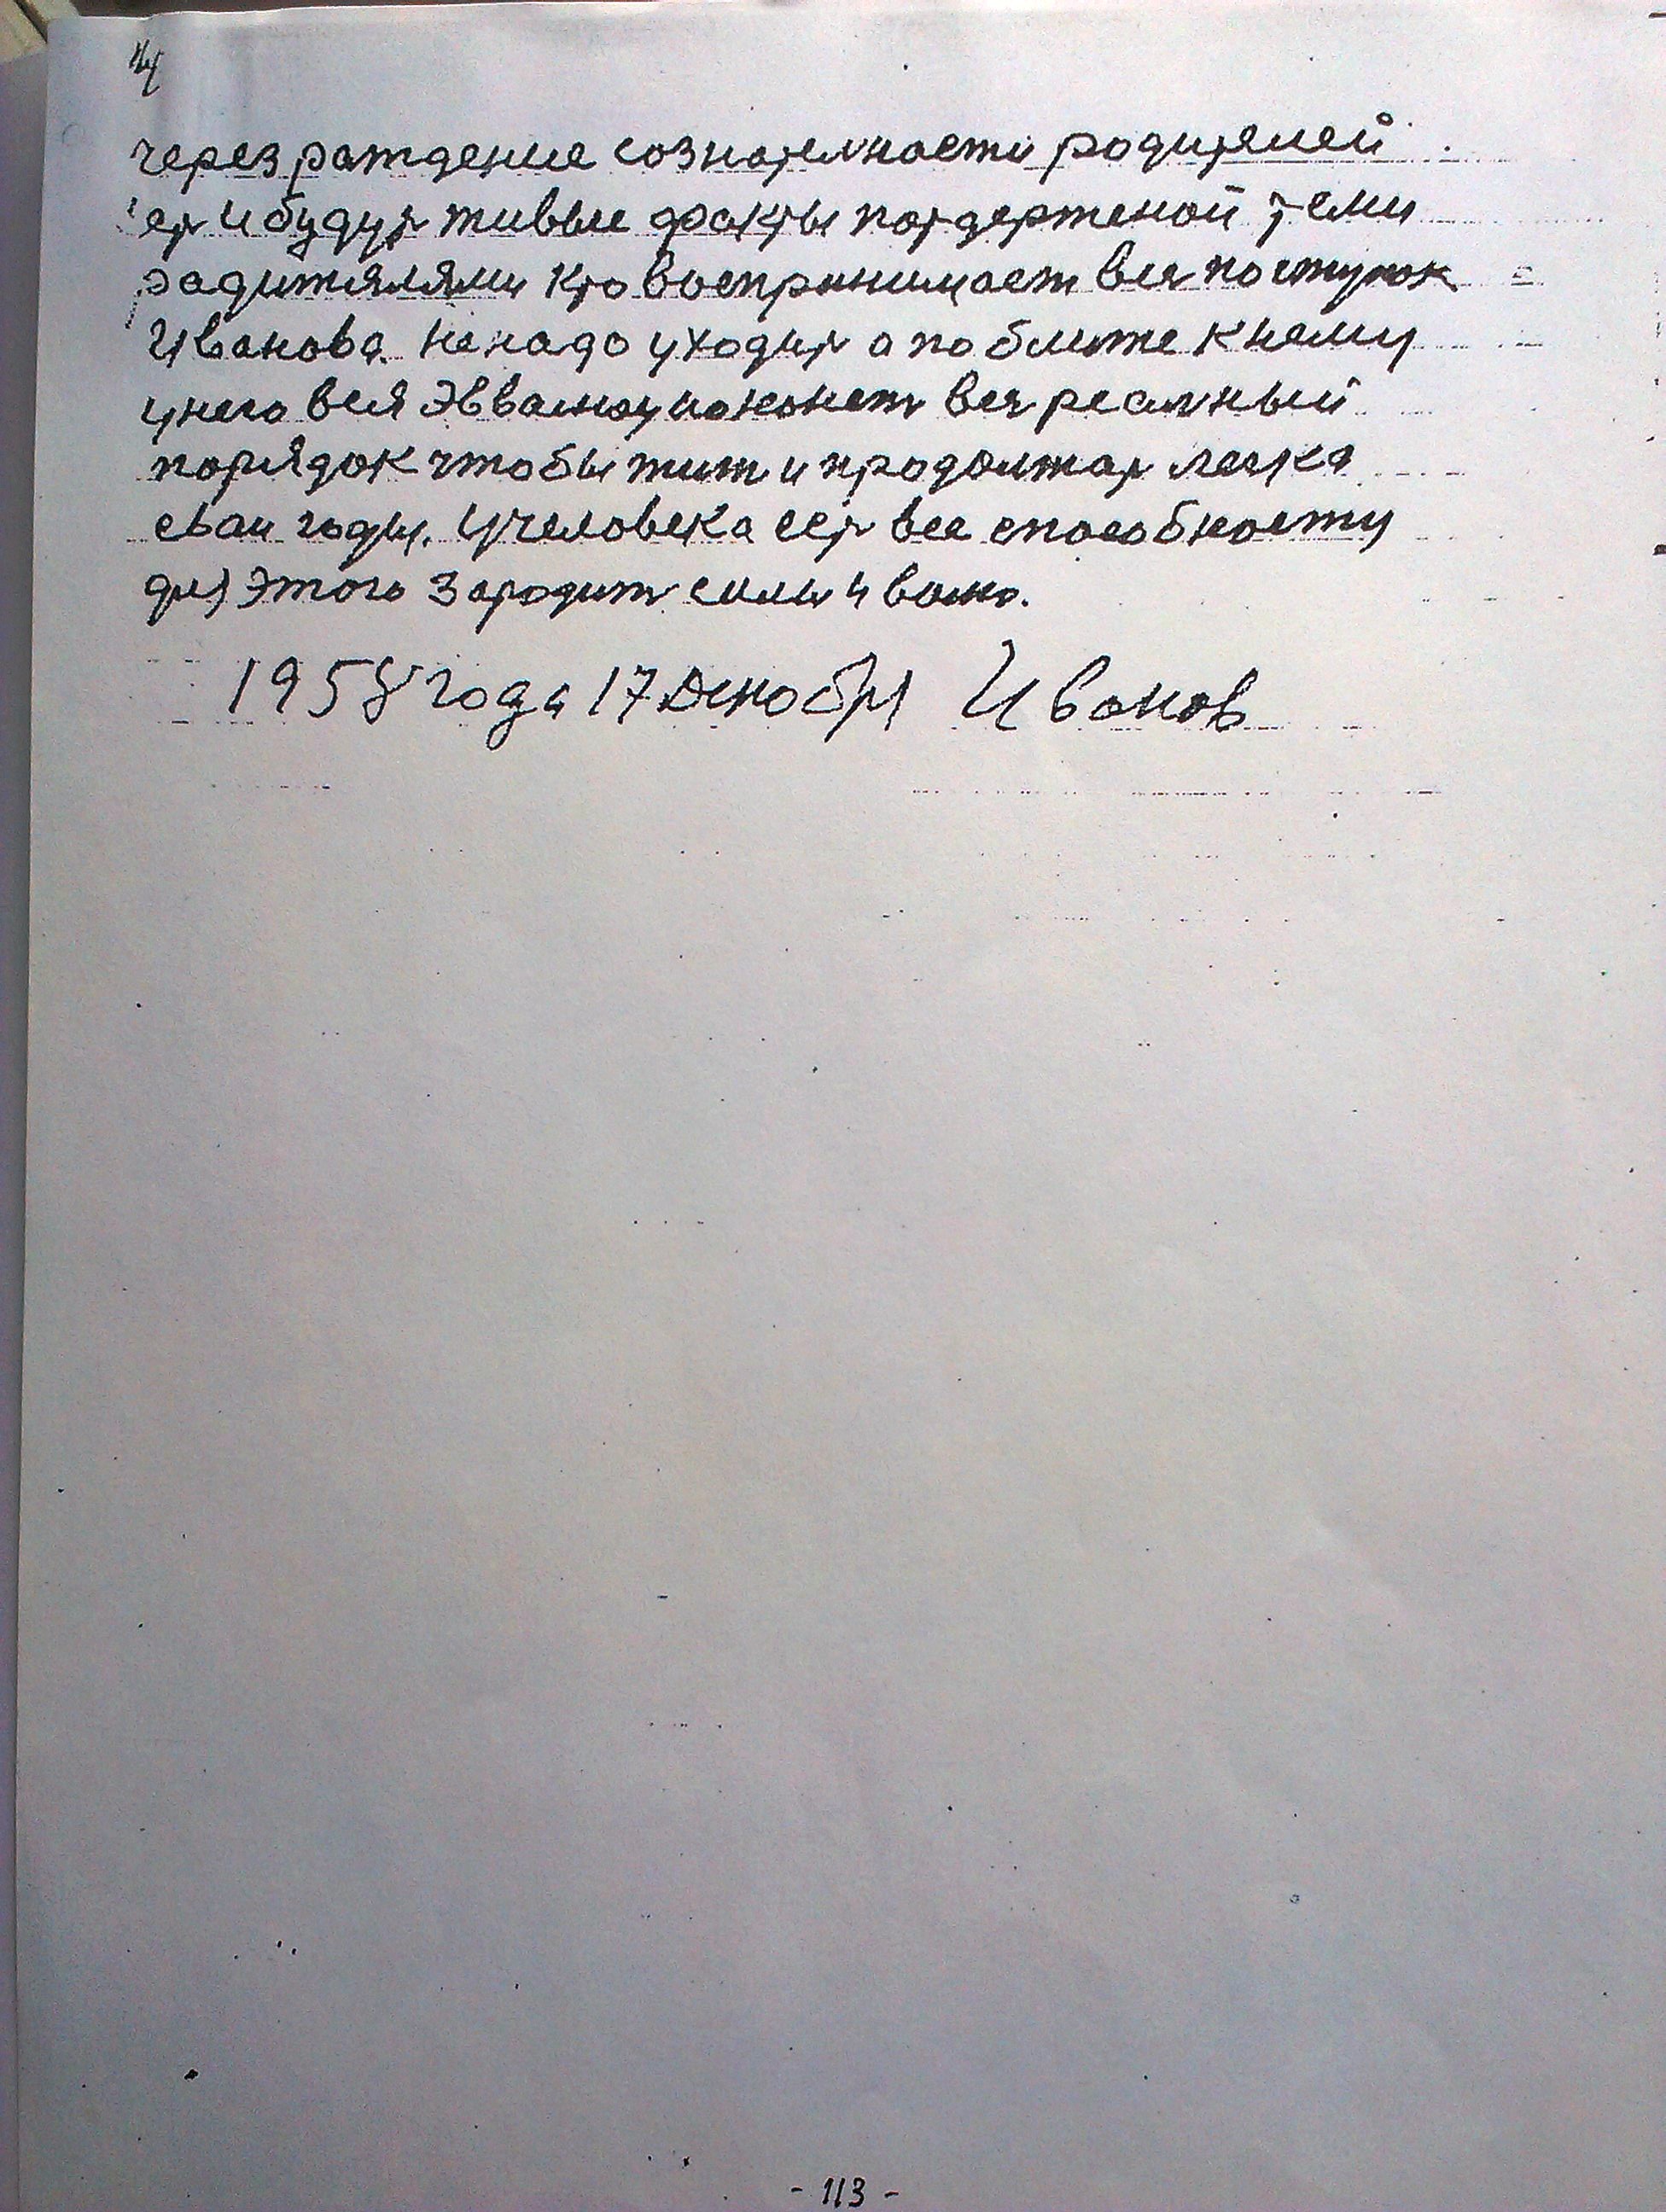 через раждение сознателности родителей
ет и будут живые факты потдерженой теми
радитялями кто воспринимает вся поступок
Иванова. Не надо уходит а поближе к нему
у него вся эволюцию вся реалный
порядок чтобы жит и продолжат легка
сваи годы. У человека ест все способности
для этого зародит силы и волю.
1958 года 17 декабря Иванов
- 113 -